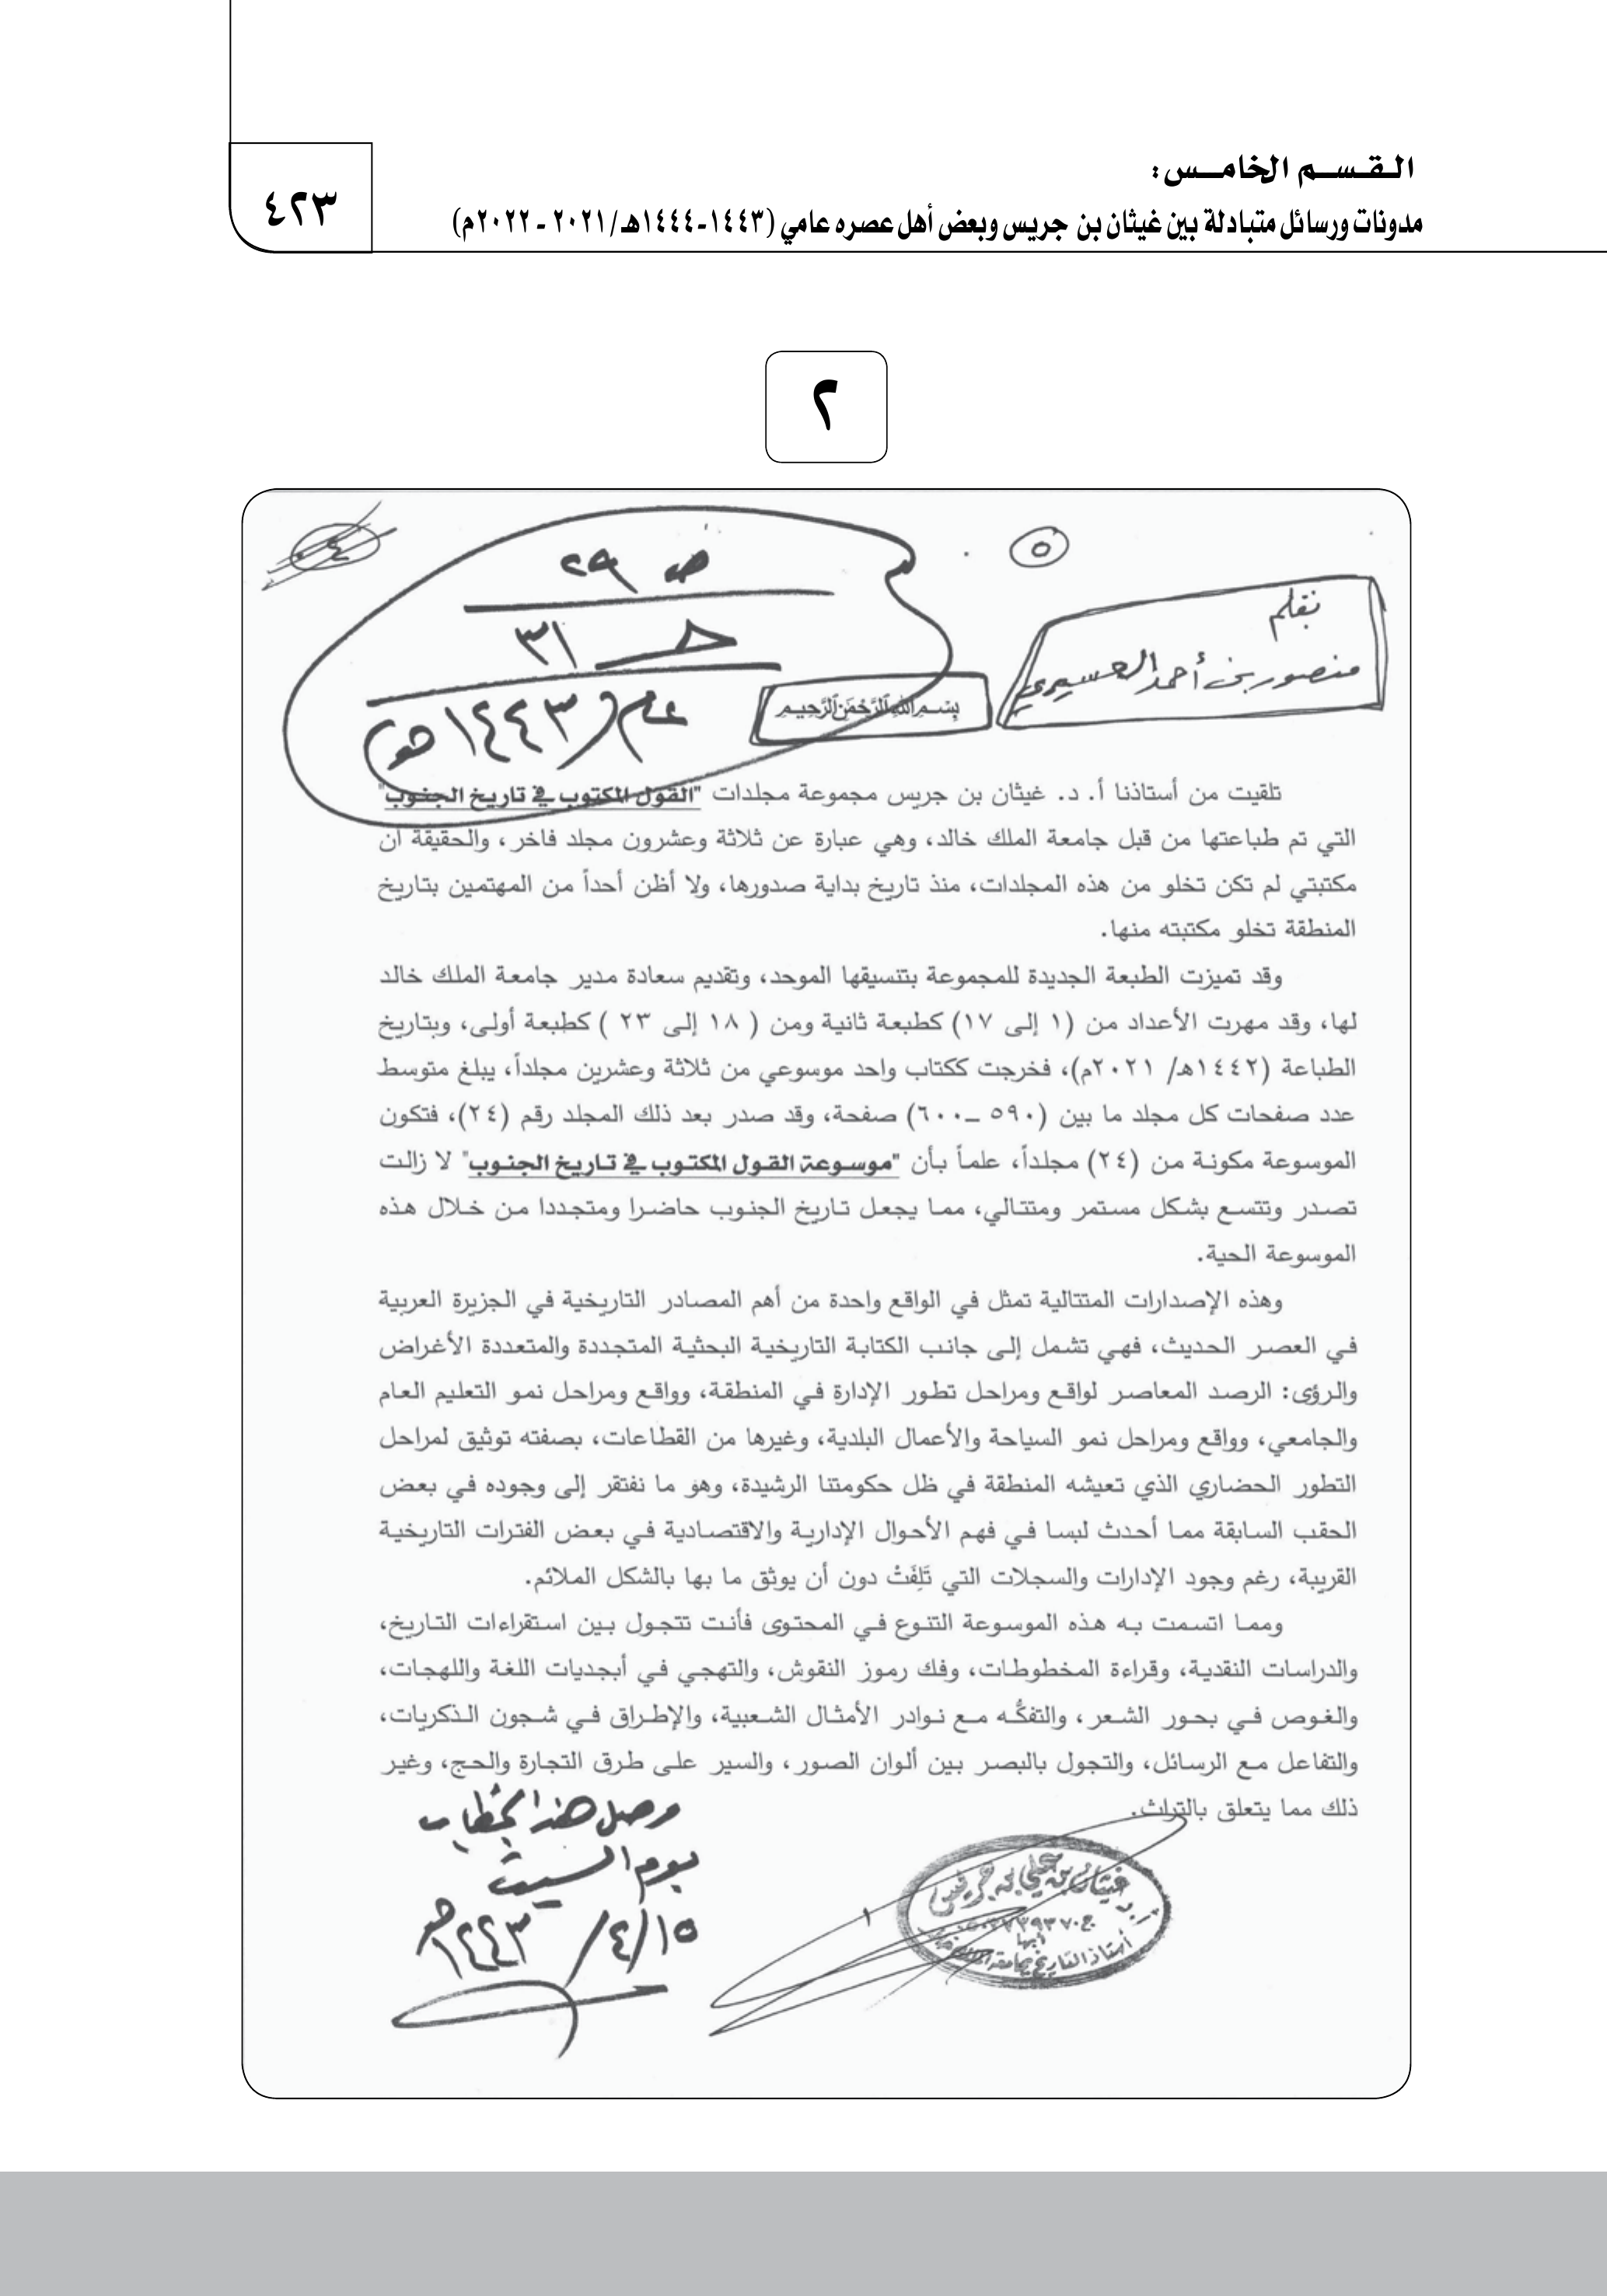 القسم الخامس:
مدونات ورسائل متبادلة بين غيثان بن جريس وبعض أهل عصره عامي (١٤٤٣-١٤٤٤هـ/ ٢٠٢١ - ٢٠٢٢م)
٤٢٣
٢
٥
٤
ص ٢٩
ج ٣١
عام ١٤٤٣هـ
بقلم
منصور بن أحمد العسيري
بسم الله الرحمن الرحيم
تلقيت من أستاذنا أ. د. غيثان بن جريس مجموعة مجلدات "القول المكتوب في تاريخ الجنوب"
التي تم طباعتها من قبل جامعة الملك خالد، وهي عبارة عن ثلاثة وعشرون مجلد فاخر، والحقيقة أن
مكتبتي لم تكن تخلو من هذه المجلدات، منذ تاريخ بداية صدورها، ولا أظن أحداً من المهتمين بتاريخ
المنطقة تخلو مكتبته منها.
وقد تميزت الطبعة الجديدة للمجموعة بتنسيقها الموحد، وتقديم سعادة مدير جامعة الملك خالد
لها، وقد مهرت الأعداد من (١ إلى ١٧) كطبعة ثانية ومن ( ١٨ إلى ٢٣ ) كطبعة أولى، وبتاريخ
الطباعة (١٤٤٢هـ/ ٢٠٢١م)، فخرجت ككتاب واحد موسوعي من ثلاثة وعشرين مجلداً، يبلغ متوسط
عدد صفحات كل مجلد ما بين (٥٩٠ –٦٠٠) صفحة، وقد صدر بعد ذلك المجلد رقم (٢٤)، فتكون
الموسوعة مكونة من (٢٤) مجلداً، علماً بأن "موسوعة القول المكتوب في تاريخ الجنوب" لا زالت
تصدر وتتسع بشكل مستمر ومتتالي، مما يجعل تاريخ الجنوب حاضرا ومتجددا من خلال هذه
الموسوعة الحية.
وهذه الإصدارات المتتالية تمثل في الواقع واحدة من أهم المصادر التاريخية في الجزيرة العربية
في العصر الحديث، فهي تشمل إلى جانب الكتابة التاريخية البحثية المتجددة والمتعددة الأغراض
والرؤى: الرصد المعاصر لواقع ومراحل تطور الإدارة في المنطقة، وواقع ومراحل نمو التعليم العام
والجامعي، وواقع ومراحل نمو السياحة والأعمال البلدية، وغيرها من القطاعات، بصفته توثيق لمراحل
التطور الحضاري الذي تعيشه المنطقة في ظل حكومتنا الرشيدة، وهو ما نفتقر إلى وجوده في بعض
الحقب السابقة مما أحدث لبسا في فهم الأحوال الإدارية والاقتصادية في بعض الفترات التاريخية
القريبة، رغم وجود الإدارات والسجلات التي تَلِفَتْ دون أن يوثق ما بها بالشكل الملائم.
ومما اتسمت به هذه الموسوعة التنوع في المحتوى فأنت تتجول بين استقراءات التاريخ،
والدراسات النقدية، وقراءة المخطوطات، وفك رموز النقوش، والتهجي في أبجديات اللغة واللهجات،
والغوص في بحور الشعر، والتفكُّه مع نوادر الأمثال الشعبية، والإطراق في شجون الذكريات،
والتفاعل مع الرسائل، والتجول بالبصر بين ألوان الصور، والسير على طرق التجارة والحج، وغير
ذلك مما يتعلق بالتراث.
وصل هذا الخطاب
يوم السبت
١٥/٤/١٤٤٣هـ
١
أ.د. غيثان بن علي بن جريس
أبها
أستاذ التاريخ بجامعة الملك خالد